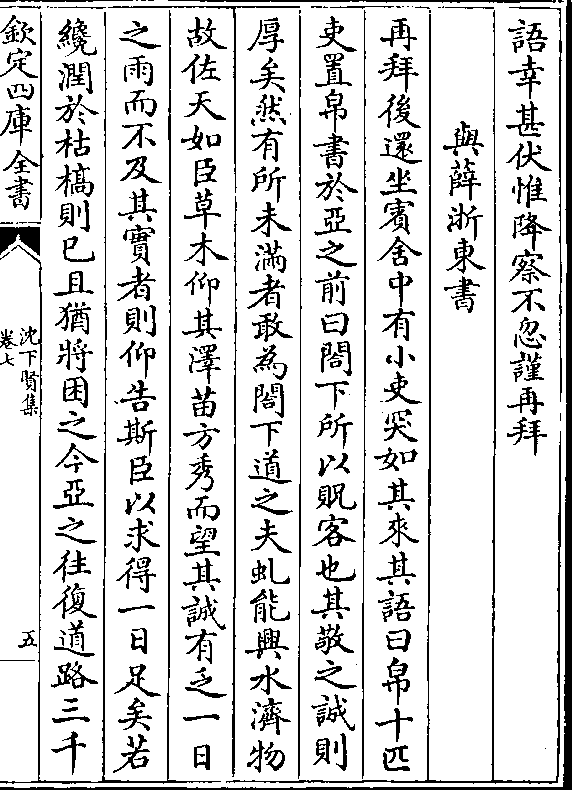 語幸甚伏惟降察不忽謹再拜
與薛浙東書
再拜後還坐賓舍中有小吏突如其來其語曰帛十匹
吏置帛書於亞之前曰閤下所以貺客也其敬之誠則
厚矣然有所未滿者敢為閤下道之夫虬能興水濟物
故佐天如臣草木仰其澤苗方秀而望其誠有乏一日
之雨而不及其實者則仰告斯臣以求得一日足矣若
纔潤於枯槁則已且猶將困之今亞之往復道路三千
欽定四庫全書
沈下賢集
卷七
五